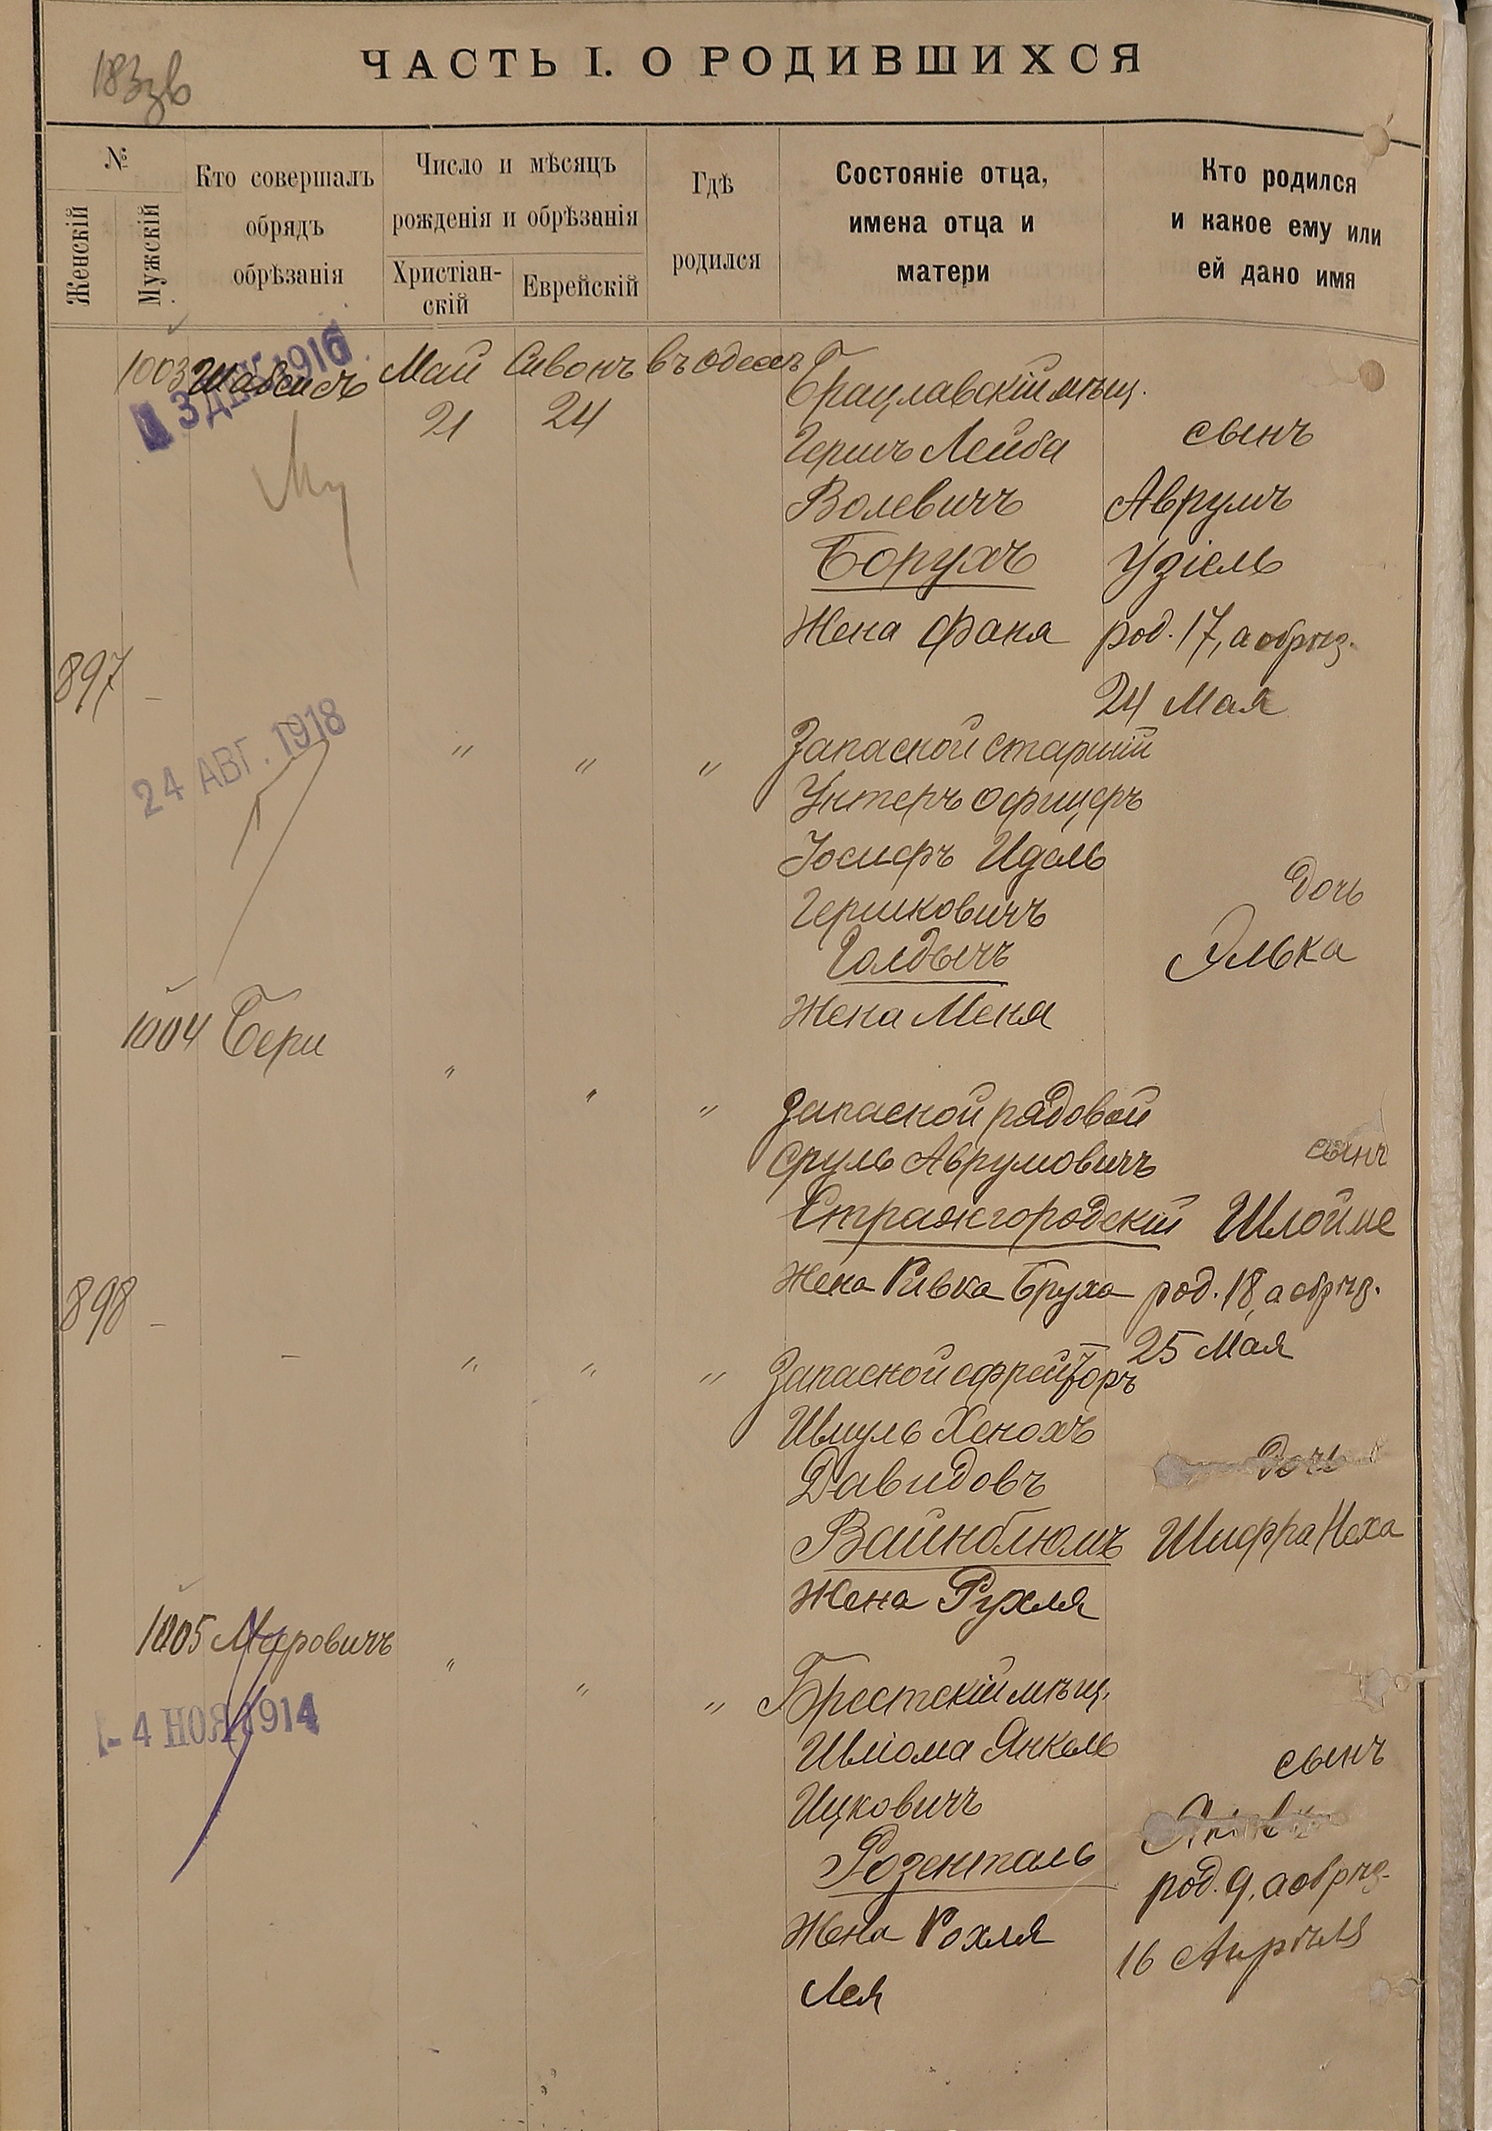 183зв
ЧАСТЬ I. О РОДИВШИХСЯ
№
Женскій
Мужскій
Кто совершалъ
обрядъ
обрѣзанія
Число и мѣсяцъ
рожденія и обрѣзанія
Христіан-
скій
Еврейскій
Гдѣ
родился
Состояніе отца,
имена отца и
матери
Кто родился
и какое ему или
ей дано имя
1003 Шавсисъ Май Сивонъ въ Одессѣ
21 24
1916
Брацлавскій мѣщ.
Гершъ Лейба
Волевичъ
Борухъ
Жена Фаня
сынъ
Аврумъ
Узіель
род. 17, а обрѣз.
24 Мая
897 -
24 АВГ. 1918
" " "
Запасной старшій
Унтеръ офицеръ
Іосифъ Идель
Гершковичъ
Голдычъ
Жена Меня
дочь
Элька
1004 Бери
" " "
Запасной рядовой
Сруль Аврумовичъ
Стражгородскій
Жена Ривка Бруха
сынъ
Шлойме
род. 18, а обрѣз.
25 Мая
898 -
- " " "
Запасной ефрейторъ
Шмуль Хенохъ
Давидовъ
Вайнблюмъ
Жена Рухля
дочь
Шифра Неха
1005 Меровичъ
- 4 НОЯ 1914
" " "
Брестскій мѣщ.
Шліома Янкель
Ицковичъ
Розенталь
Жена Рохля
Лея
сынъ
род. 9, а обрѣз.
16 Апрѣля